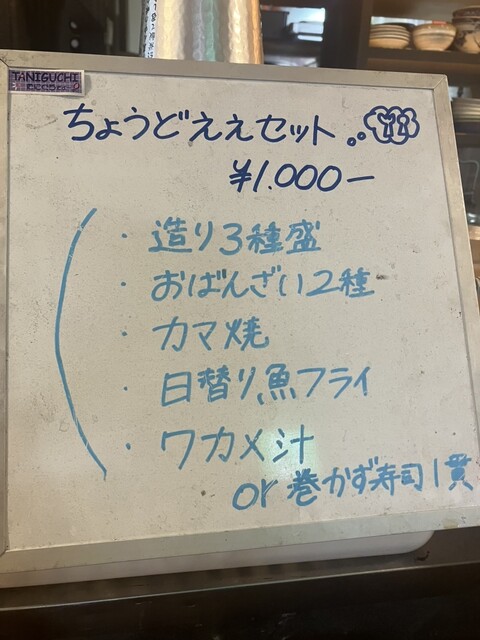 TANIGUCHI
ちょうどええセット
¥1.000ー
・造り3種盛
・おばんざい2種
・カマ焼
・日替り魚フライ
・ワカメ汁
or 巻かず寿司1貫